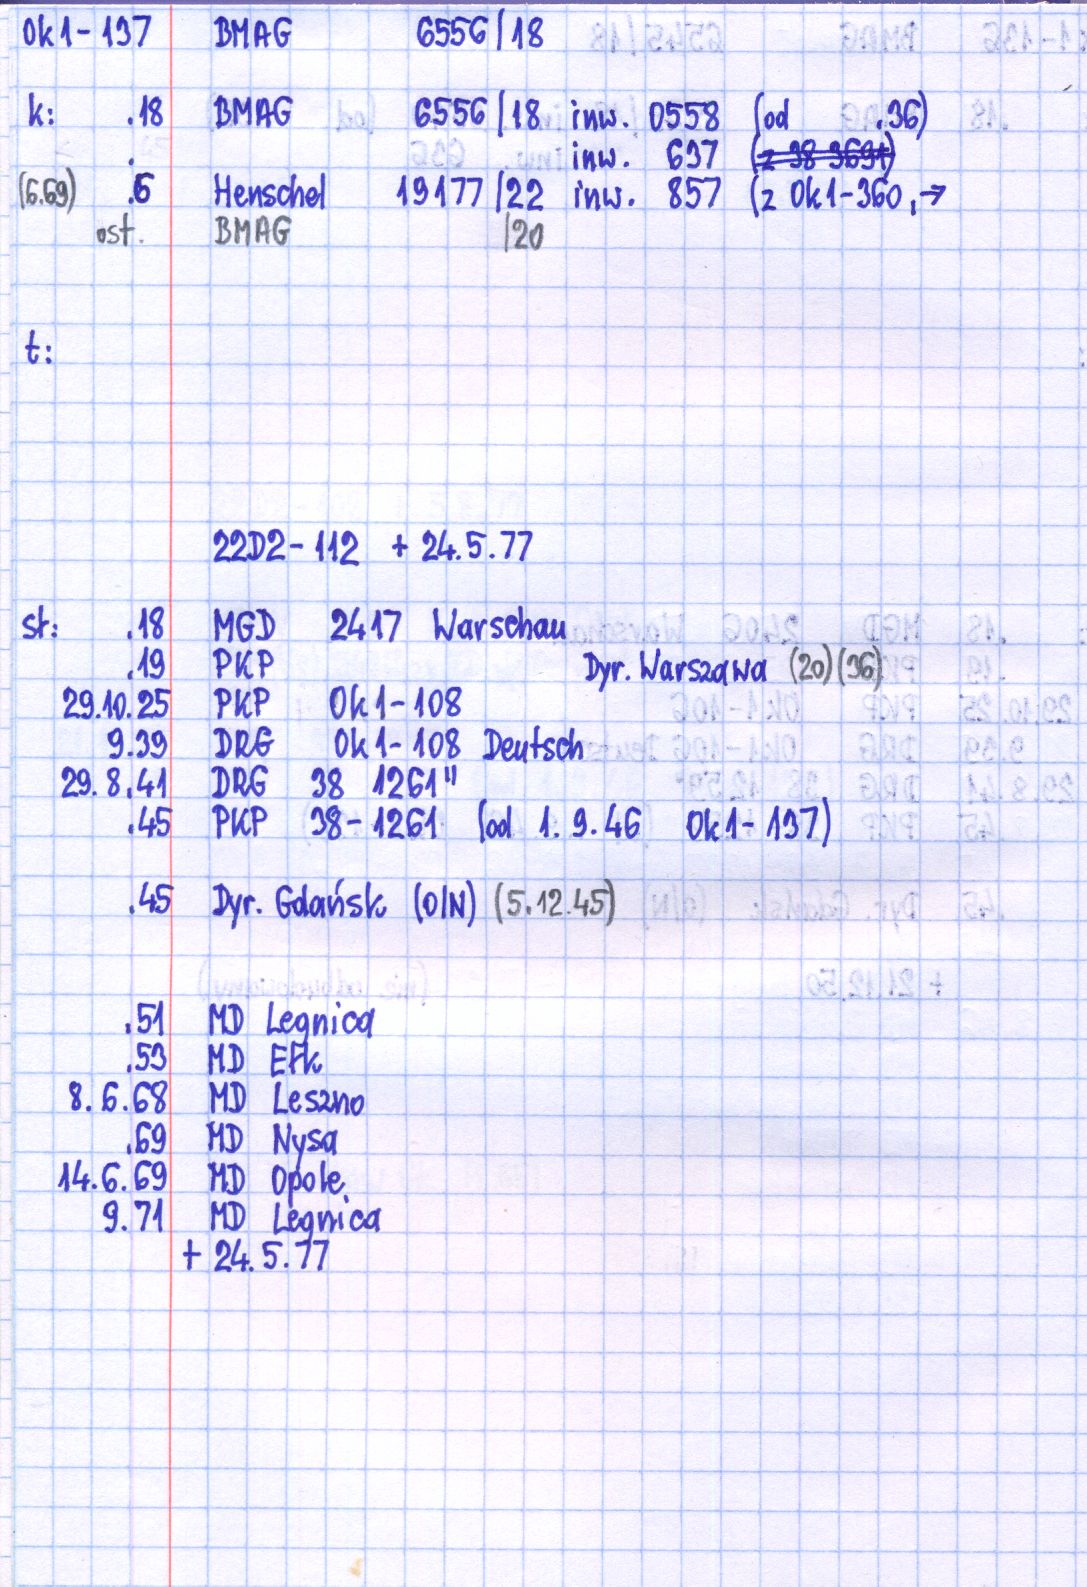 Ok1-137 BMAG 6556/18
k: .18 BMAG 6556/18 inw. 0558 (od .36)
. inw. 637 (z 38 3691)
(6.69) .6 Henschel 19177/22 inw. 857 (z Ok1-360, →
ost. BMAG /20
t:
22D2-112 + 24.5.77
st: .18 MGD 2417 Warschau
.19 PKP Dyr. Warszawa (20)(36)
29.10.25 PKP Ok1-108
9.39 DRG Ok1-108 Deutsch
29.8.41 DRG 38 1261"
.45 PKP 38-1261 (od 1.9.46 Ok1-137)
.45 Dyr. Gdańsk (O/N) (5.12.45)
.51 MD Legnica
.53 MD Ełk
8.6.68 MD Leszno
.69 MD Nysa
14.6.69 MD Opole
9.71 MD Legnica
+ 24.5.77